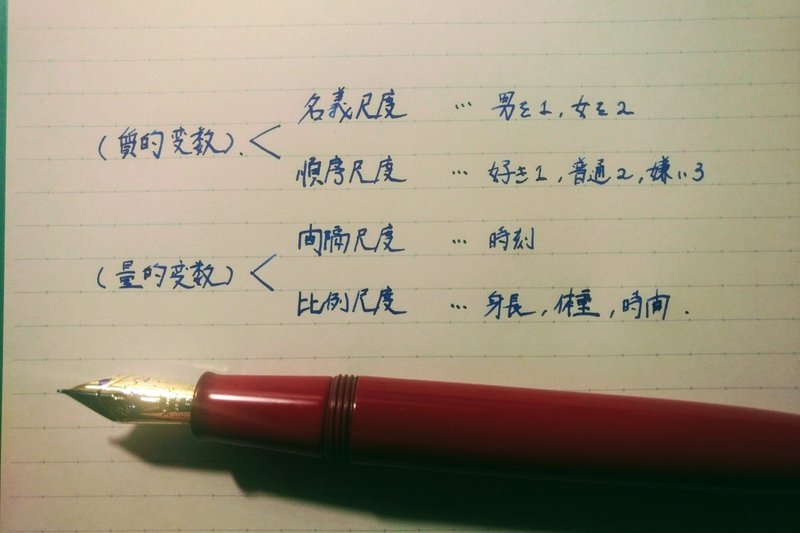 名義尺度 … 男を1, 女を2
(質的変数). <
順序尺度 … 好き1, 普通2, 嫌い3
間隔尺度 … 時刻
(量的変数) <
比例尺度 … 身長, 体重, 時間.